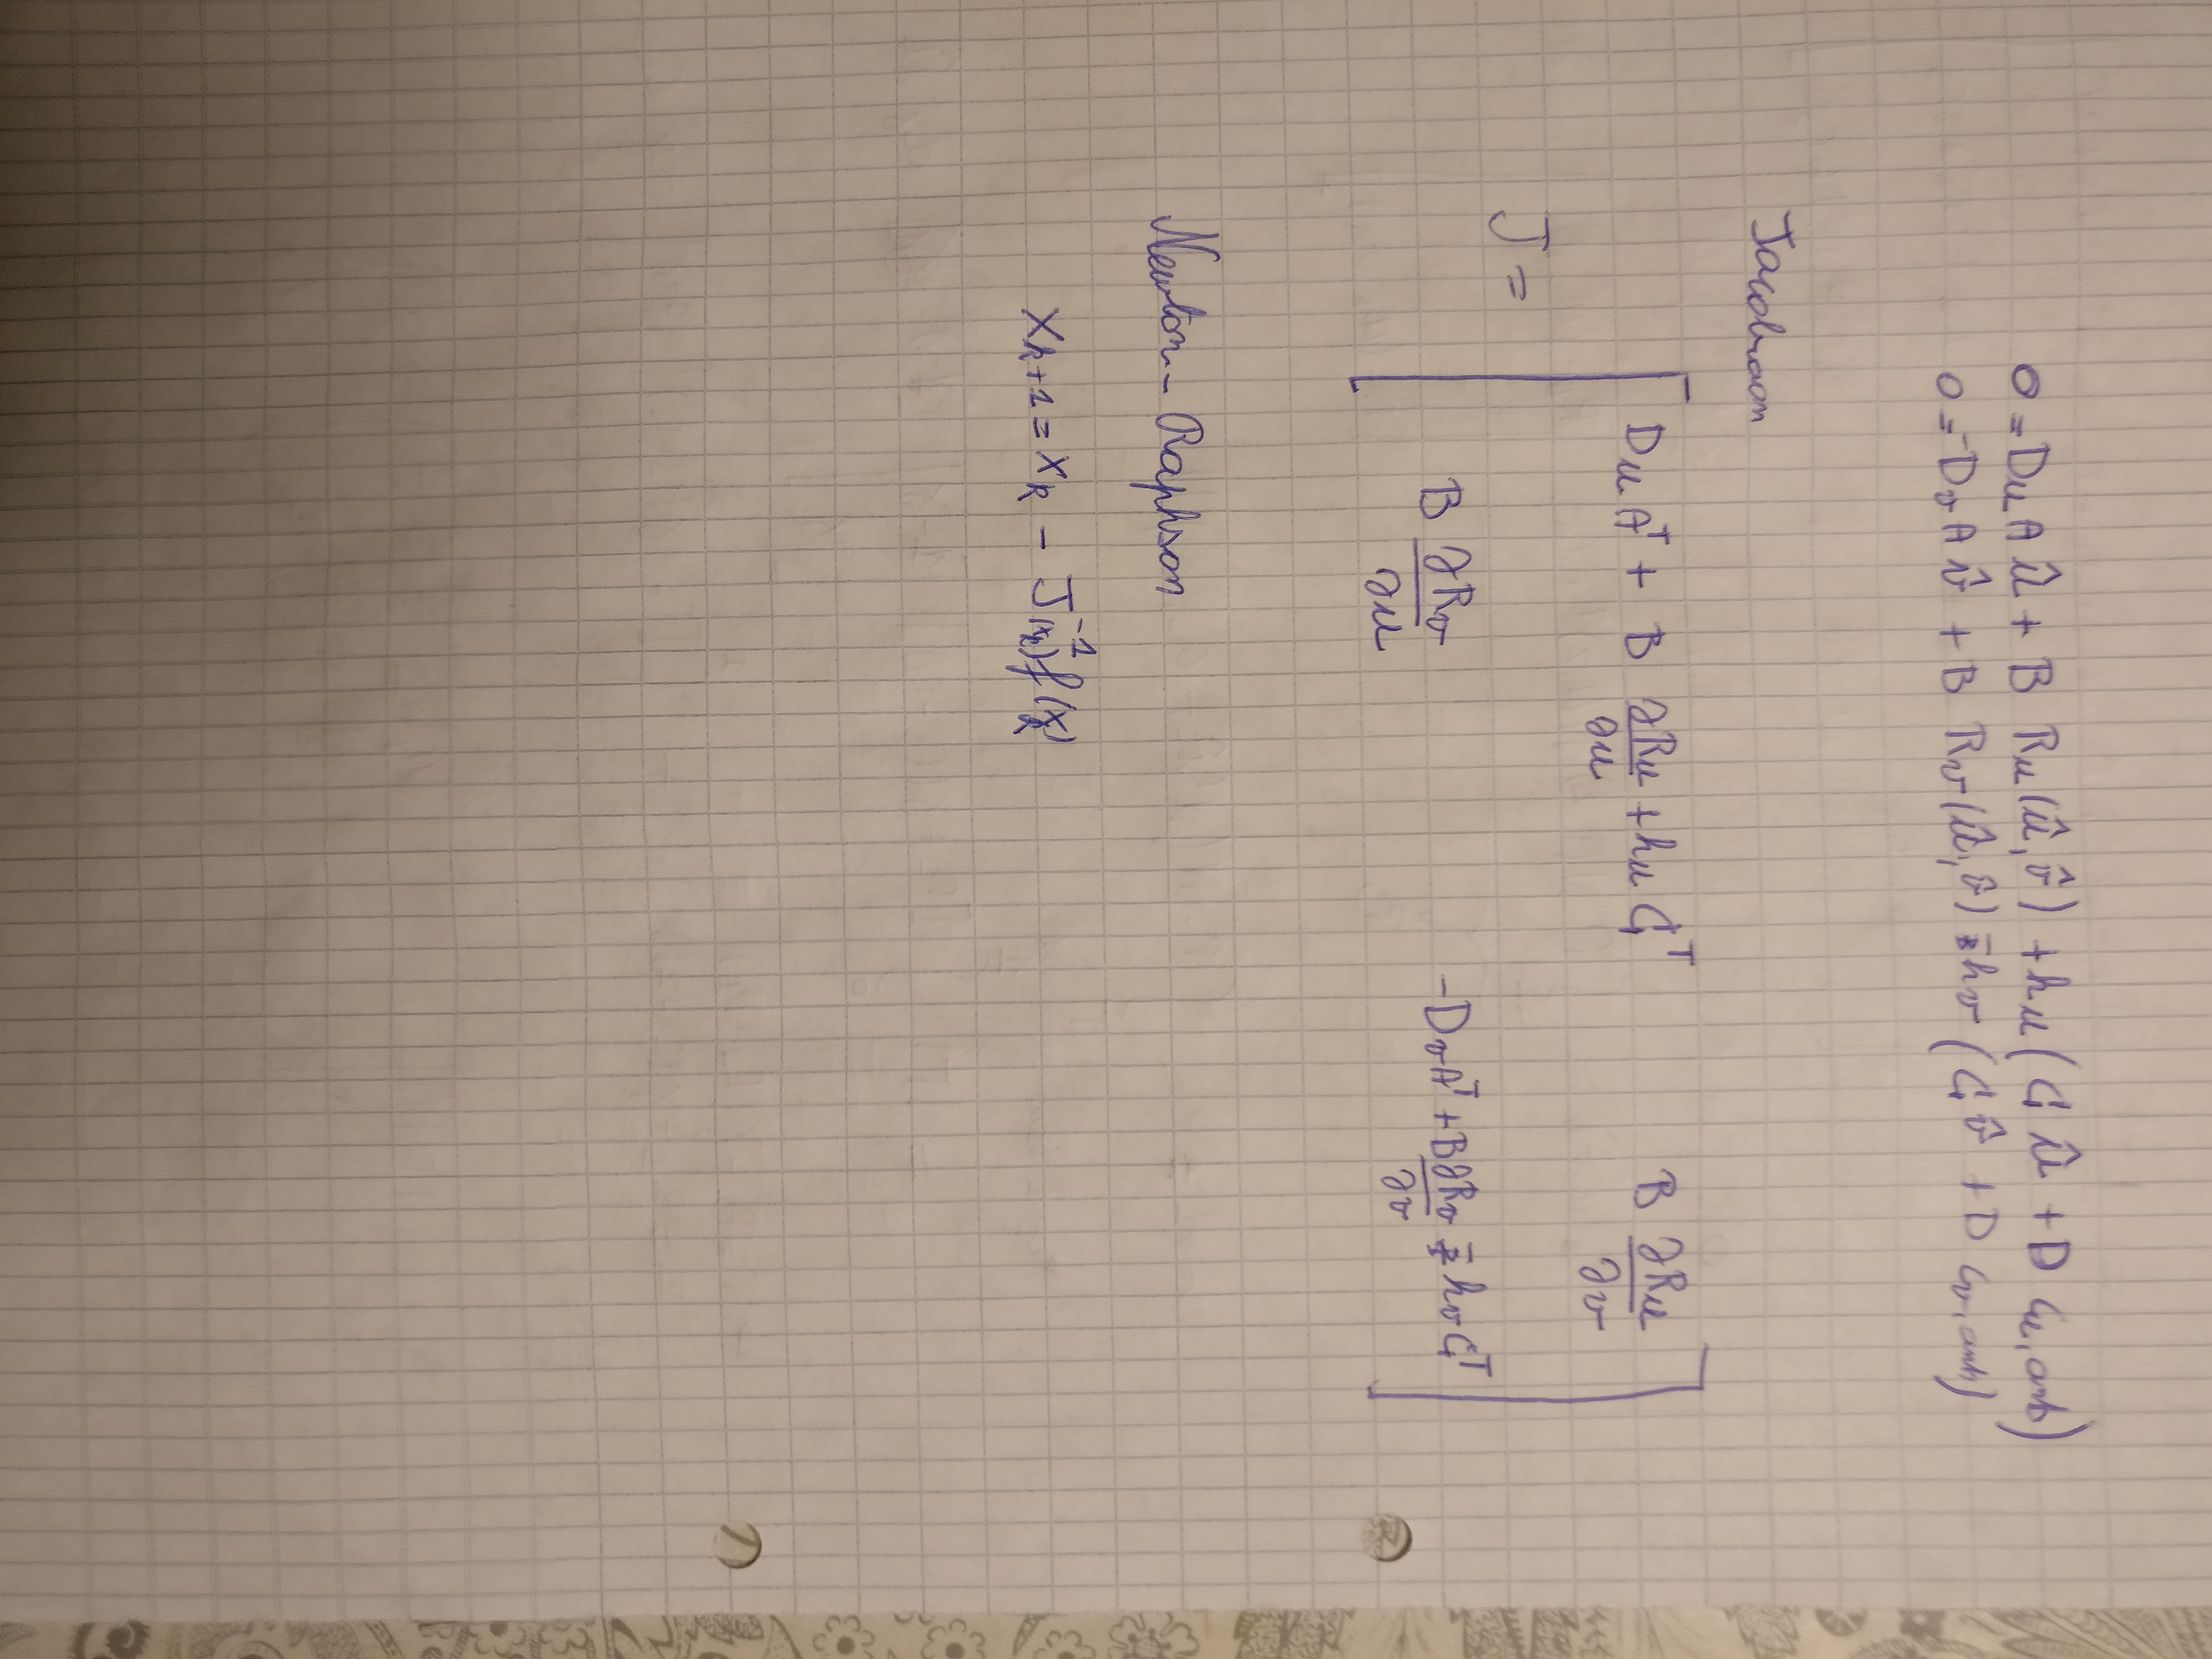 0 = Du A û + B Ru(û, v̂) + hu (C û + D Cu,amb)
0 = -Dv A v̂ + B Rv(û, v̂) - hv (C v̂ + D Cv,amb)
Jacobiaan
J = [ Du Aᵀ + B ∂Ru/∂u + hu Cᵀ    B ∂Ru/∂v
B ∂Rv/∂u    -Dv Aᵀ + B ∂Rv/∂v - hv Cᵀ ]
Newton-Raphson
x_{k+1} = x_k - J⁻¹(x_k) f(x_k)